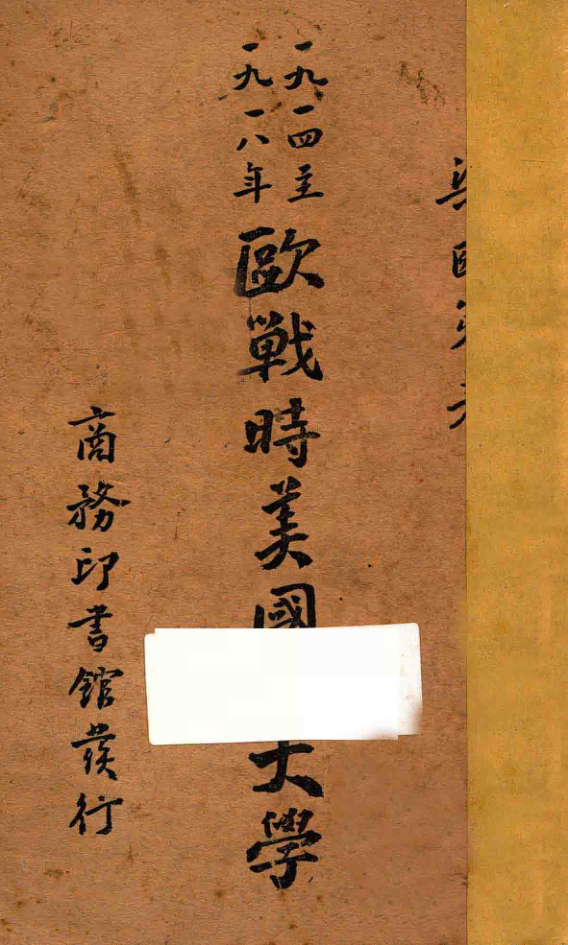 一九一四至
一九一八年
歐戰時美國大學
商務印書館發行